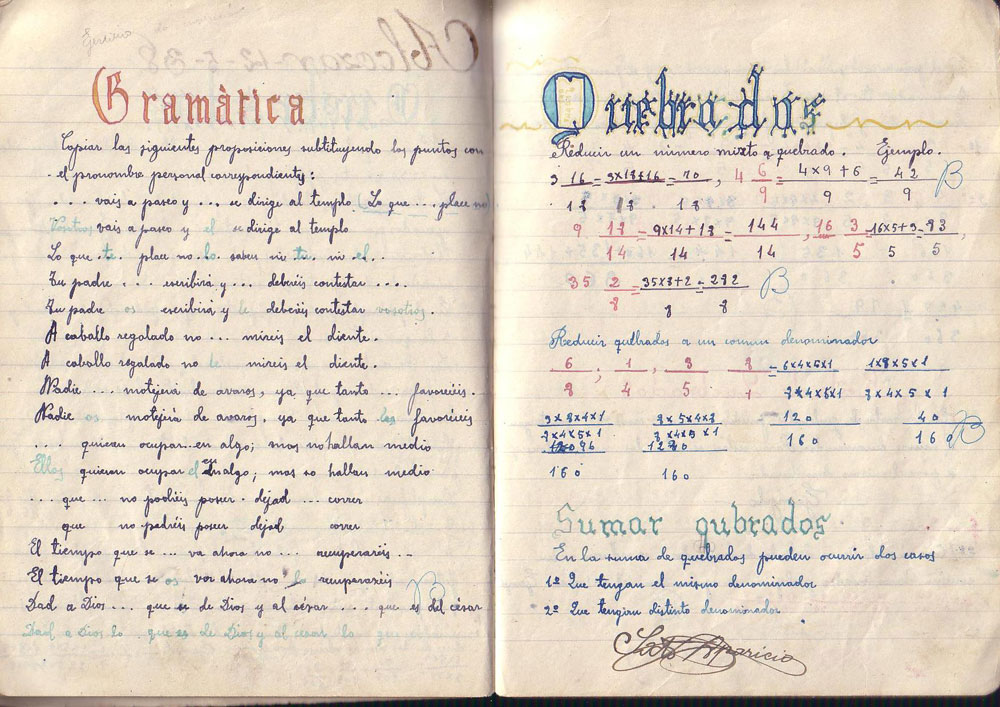 Gramàtica
Copiar las siguientes proposiciones subtituyendo los puntos con
el pronombre personal correspondiente:
. . . vais a paseo y . . . se dirige al templo (Lo que . . . place no
vais a paseo y el se dirige al templo
Lo que te place no lo sabeu ni tu ni el . .
Tu padre . . . escribirá y . . . debereis contestar . . . .
Tu padre os escribirá y le debereis contestar vosotros.
A caballo regalado no . . . mireis el diente.
A caballo regalado no le mireis el diente.
Nadie . . . motejerá de avaros, ya que tanto . . . favoreceis.
Nadie os motejerá de avaros, ya que tanto les favoreceis
. . . quieren ocupar...en algo; mas no hallan medio
Ellos quieren ocupar el en algo; mas no hallan medio
. . . que . . . no podreis poseer dejad . . . correr
que no padreis poseer dejad correr
El tiempo que se . . . va ahora no . . . recuperareis . .
El tiempo que se os var ahora no lo recuperareis
Dad a Dios . . . que es de Dios y al césar . . . que es del césar
Dad a Dios lo que es de Dios y al césar lo que
B
Quebrados
Réducir un número mixto a quebrado. Ejemplo.
3 16/18 = 3x18+16/18 = 70/18, 4 6/9 = 4x9+6/9 = 42/9 B
9 18/14 = 9x14+18/14 = 144/14, 16 3/5 = 16x5+3/5 = 83/5,
35 2/8 = 35x8+2/8 = 282/8 B
Reducir qulbrados a un comun denominador
6/8; 1/4, 3/5 8/1 = 6x4x5x1/8x4x5x1 1x8x5x1/8x4x5x1
3x8x4x1/8x4x5x1 8x5x4x8/8x4x5x1 120/160 40/160 B
96/160 /160
Sumar qubrados
En la suma de quebrados pueden ocurrir dos casos
1º Que tengan el mismo denominador
2º Que tengian distinto denominador
Aparicio